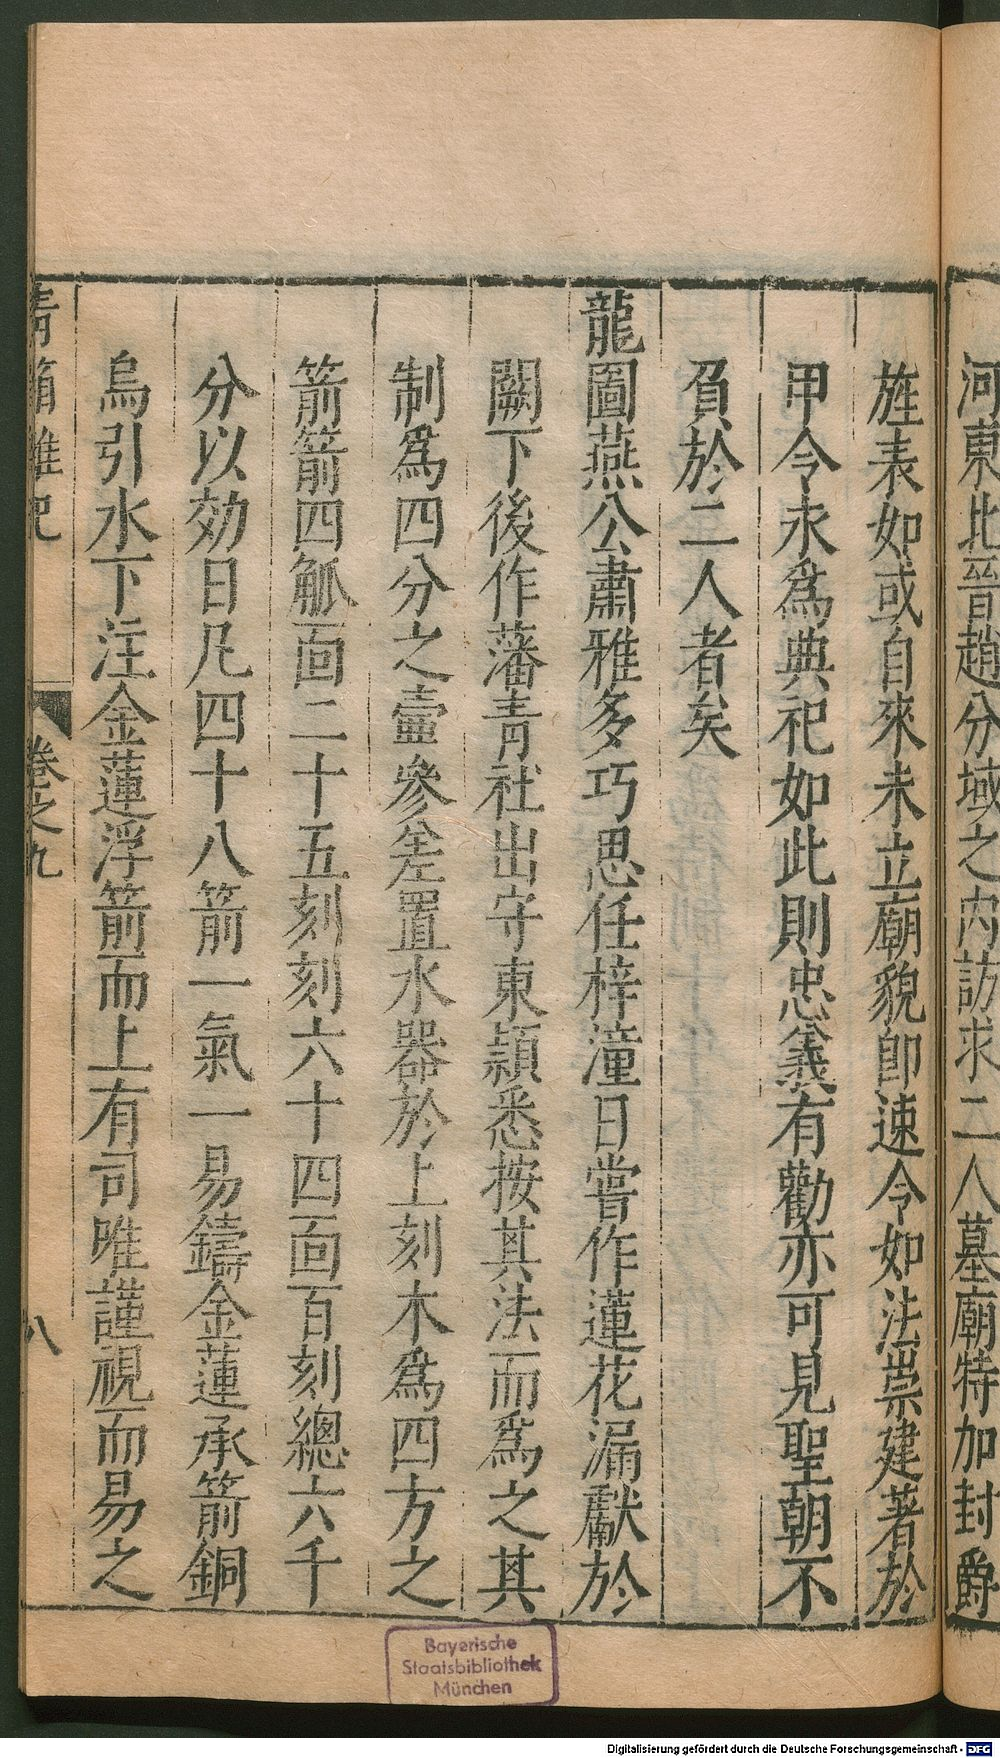 河東北晉趙分域之內訪求二人墓廟特加封爵
旌表如或自來未立廟貌卽速令如法崇建著於
甲令永爲典祀如此則忠義有勸亦可見聖朝不
負於二人者矣
龍圖燕公肅雅多巧思任梓潼日嘗作蓮花漏獻於
闕下後作藩青社出守東潁悉按其法而爲之其
制爲四分之壷參差置水器於上刻木爲四方之
箭箭四觚面二十五刻刻六十四面百刻總六千
分以効日凡四十八箭一氣一易鑄金蓮承箭銅
烏引水下注金蓮浮箭而上有司唯謹視而易之
青箱雜記
卷之九
八
Bayerische
Staatsbibliothek
München
Digitalisierung gefördert durch die Deutsche Forschungsgemeinschaft - DFG